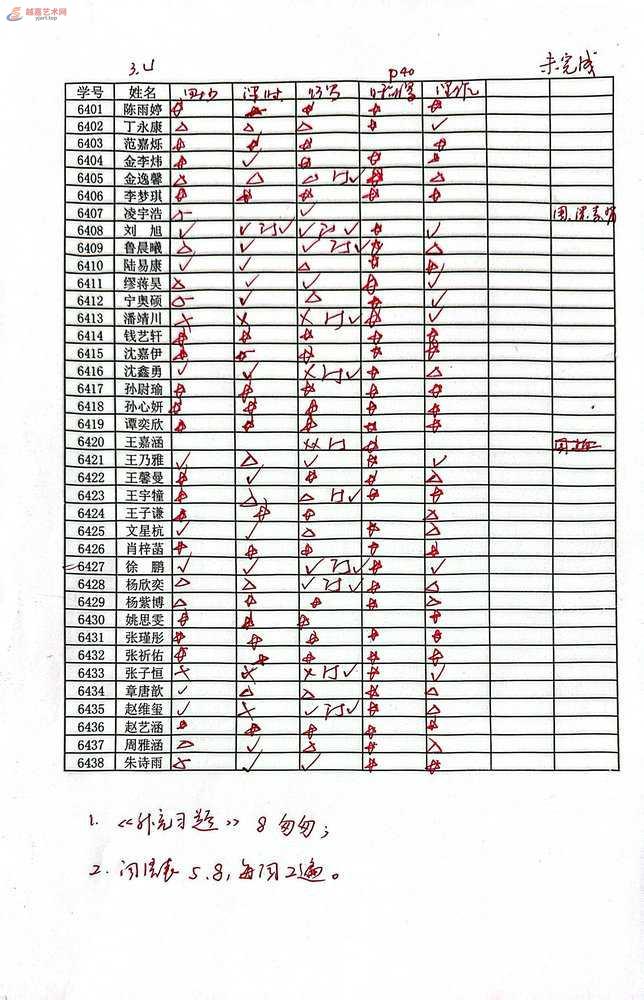 越嘉艺术网
yjart.top
3.4 P40 未完成
学号 姓名
6401 陈雨婷
6402 丁永康 △ △ △ ✓
6403 范嘉烁
6404 金李炜 ✓
6405 金逸馨 △ △ 订✓ △
6406 李梦琪
6407 凌宇浩 ✓
6408 刘旭 ✓ ✓订✓ ✓订✓ ✓
6409 鲁晨曦 △ ✓ ✓订✓ △
6410 陆易康 ✓ ✓ △
6411 缪蒋昊 ✓ ✓ ✓
6412 宁奥硕 ✓ △ ✓
6413 潘靖川 × × ×订✓ ✓
6414 钱艺轩
6415 沈嘉伊
6416 沈鑫勇 ✓ ✓ ×订✓ △
6417 孙尉瑜
6418 孙心妍
6419 谭奕欣
6420 王嘉涵 ××订
6421 王乃雅 ✓ △ ✓ ✓
6422 王馨曼 ✓ △
6423 王宇憧 △ △订✓
6424 王子谦 △
6425 文星杭 ✓ ✓ △ △
6426 肖梓菡
6427 徐鹏 ✓ ✓ ✓订✓ ✓
6428 杨欣奕 △ △ ✓订✓ △
6429 杨紫博 △ △
6430 姚思雯
6431 张瑾彤
6432 张祈佑
6433 张子恒 × × ×订✓ ✓
6434 章唐歆 ✓ △ △ △
6435 赵维玺 ✓ × ✓订✓ △
6436 赵艺涵
6437 周雅涵 △ ✓ △
6438 朱诗雨 ✓ ✓
1. 《补充习题》8 匆匆;
2. 5.8,每周2遍。